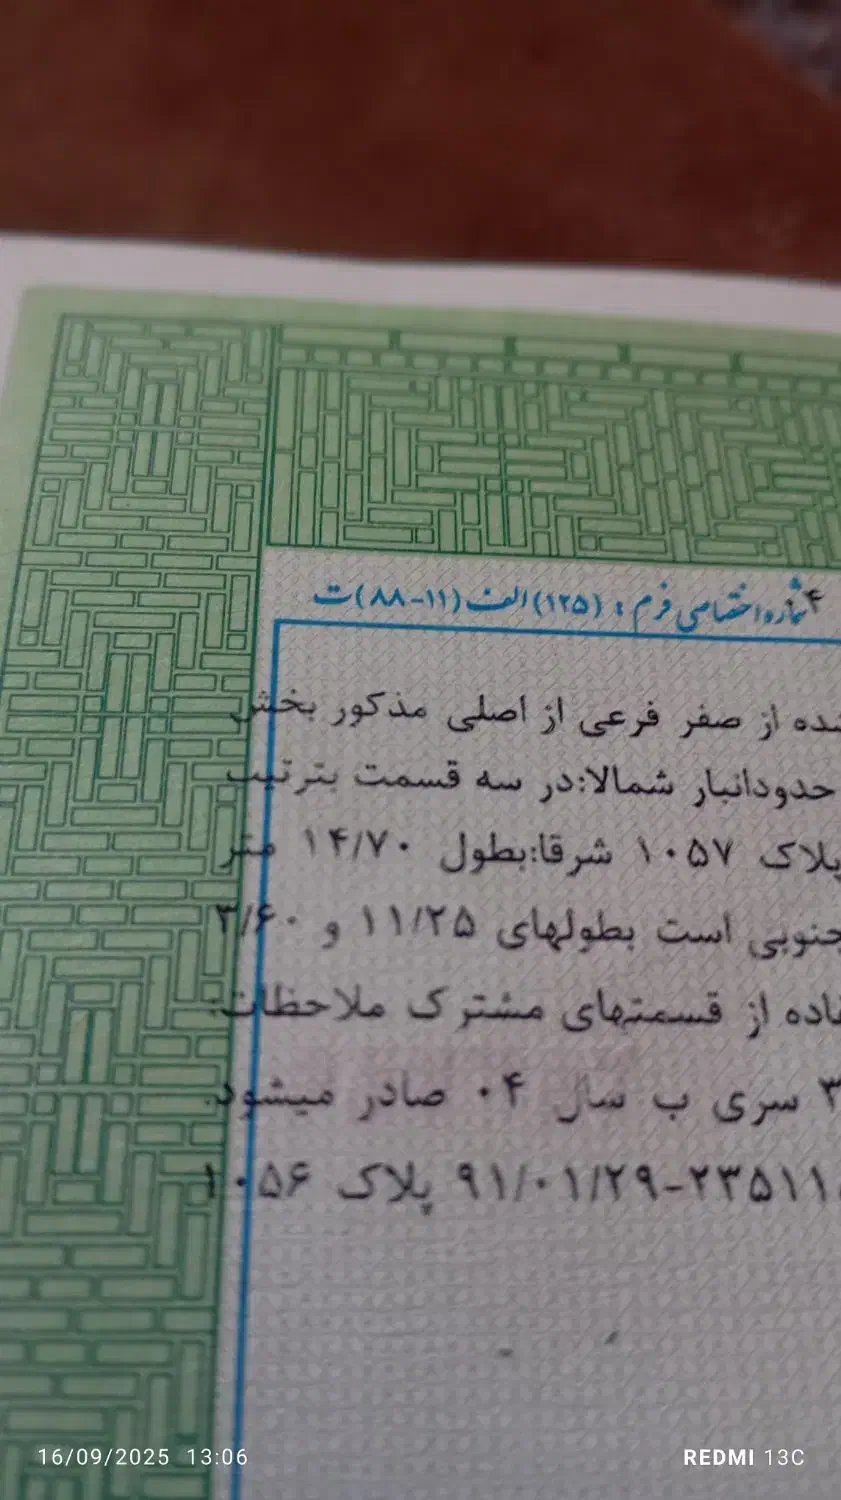 شماره اختصاصی فرم : (۱۲۵) الف (۱۱-۸۸) ت
شده از صفر فرعی از اصلی مذکور بخش
حدودانبار شمالا:در سه قسمت بترتیب
پلاک ۱۰۵۷ شرقا:بطول ۱۴/۷۰ متر
جنوبی است بطولهای ۱۱/۲۵ و ۳/۶۰
از قسمتهای مشترک ملاحظات:
۳ سری ب سال ۰۴ صادر میشود.
۲۳۵۱۱-۹۱/۰۱/۲۹ پلاک ۱۰۵۶
16/09/2025 13:06
REDMI 13C